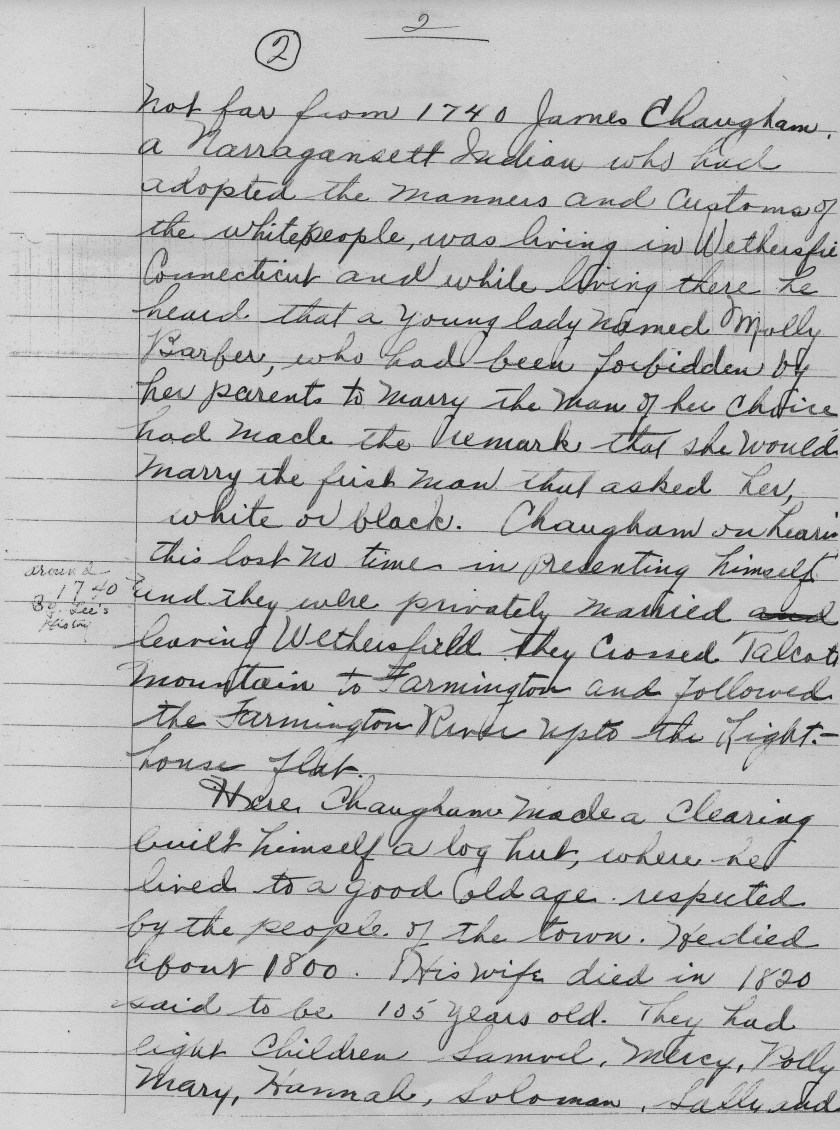 2
2
Not far from 1740 James Chaugham,
a Narragansett Indian who had
adopted the manners and customs of
the white people, was living in Wethersfie
Connecticut and while living there he
heard that a young lady named Molly
Barber, who had been forbidden by
her parents to marry the man of her choice
had made the remark that she would
marry the first man that asked her,
white or black. Chaugham on hearin
this lost no time in presenting himself
and they were privately married and
around
1740
By. Lee's
History
leaving Wethersfield they crossed Talcott
Mountain to Farmington and followed
the Farmington River up to the Light-
house flat.
Here Chaugham made a clearing
built himself a log hut, where he
lived to a good old age respected
by the people of the town. He died
about 1800. His wife died in 1820
said to be 105 years old. They had
eight children Samuel, Mercy, Polly
Mary, Hannah, Soloman, Sally and